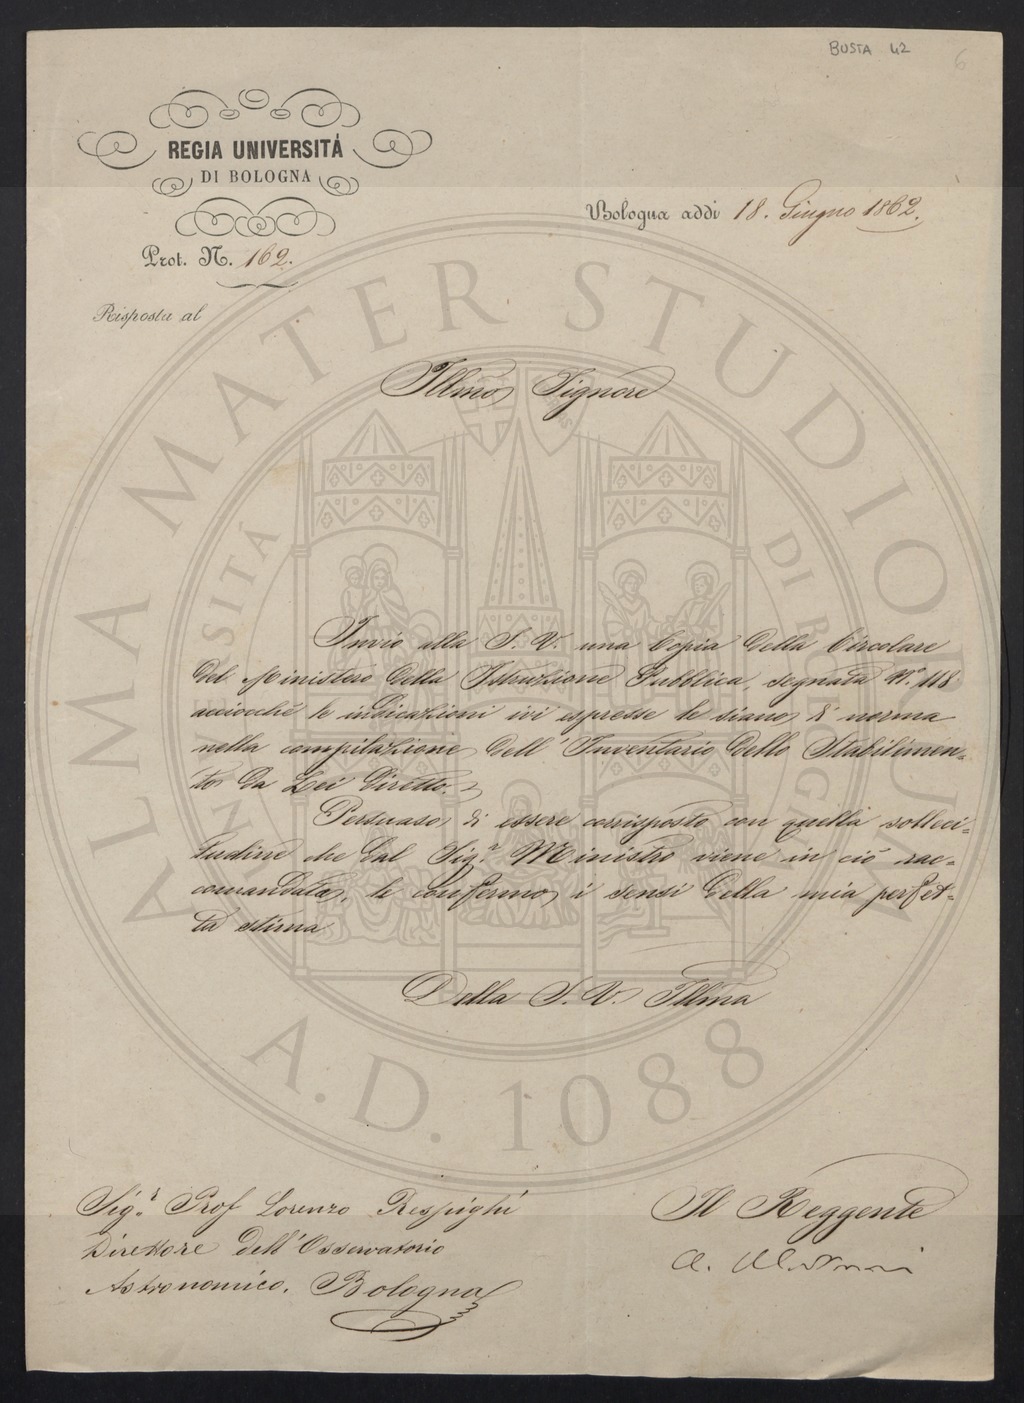 BUSTA 42
6
REGIA UNIVERSITÁ
DI BOLOGNA
Prot. N. 162.
Bologna addì 18. Giugno 1862.
Risposta al
Illmo Signore
Invio alla S. V. una Copia della Circolare
del Ministero della Istruzione Pubblica, segnata N.º 118
acciocchè le indicazioni ivi espresse le siano di norma
nella compilazione dell'Inventario dello Stabilimen=
to da Lei diretto.
Persuaso di essere corrisposto con quella solleci=
tudine che dal Sig.r Ministro viene in ciò rac=
comandata, le confermo i sensi della mia perfet=
ta stima
Della S. V. Illma
Sig.r Prof Lorenzo Respighi
Direttore dell'Osservatorio
Astronomico. Bologna
Il Reggente
A. Montanari
ALMA MATER STUDIORUM
UNIVERSITÀ DI BOLOGNA
A.D. 1088